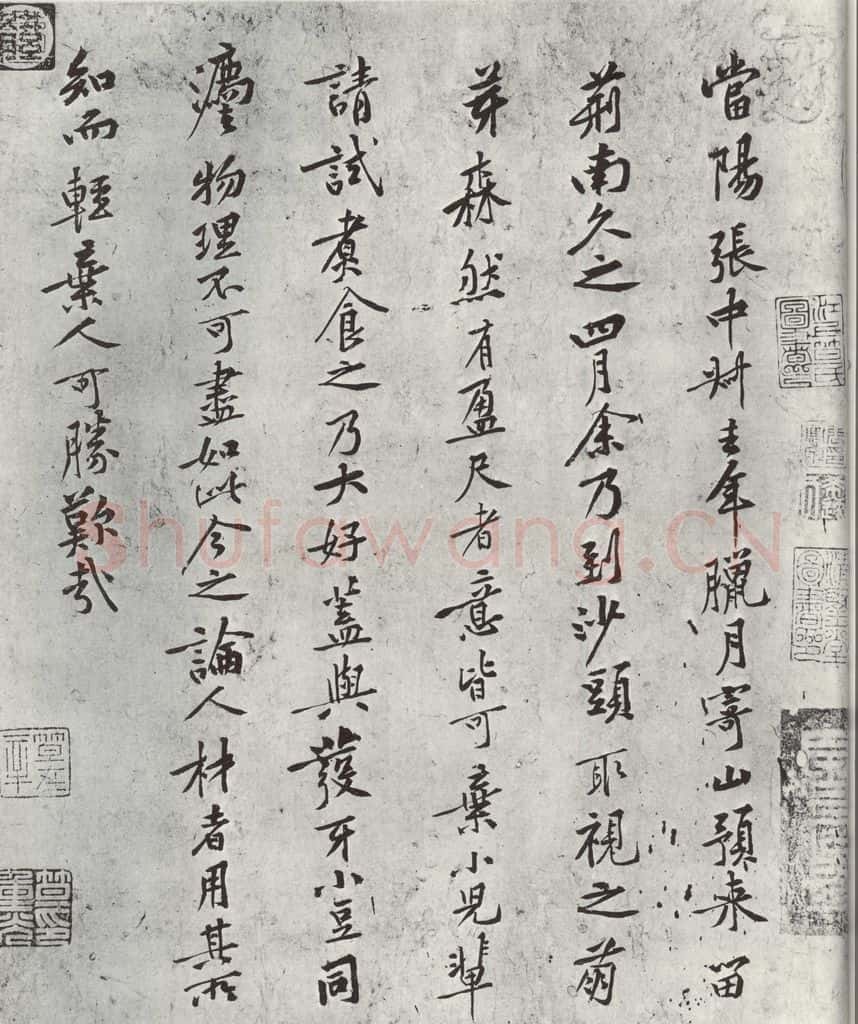 當陽張中叔去年臘月寄山預来留
荊南久之四月余乃到沙頭取視之萌
芽森然有盈尺者意皆可棄小兒輩
請試煑食之乃大好蓋與發牙小豆同
灋物理不可盡如此今之論人材者用其所
知而輕棄人可勝歎哉
Shufawang.CN